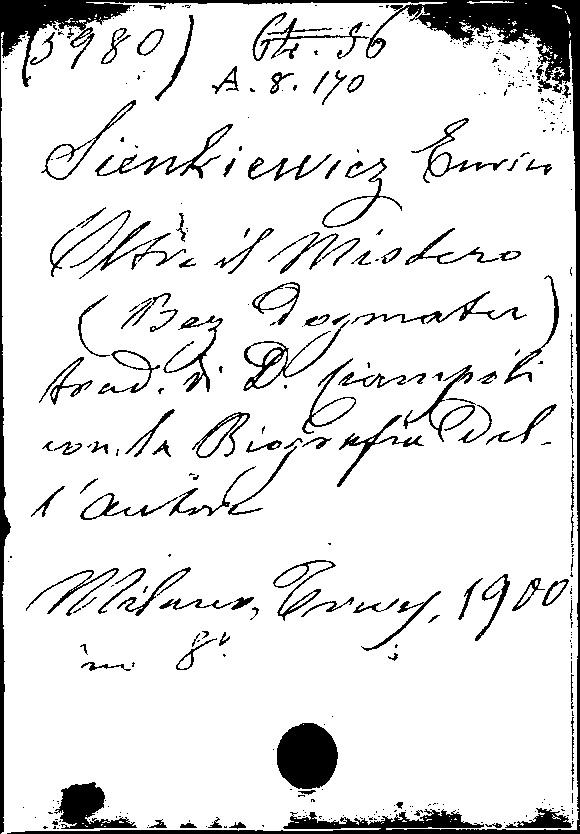 (3980)
A. 8. 170
Sienkiewicz Enrico
Oltre il Mistero
(Bez Dogmatu)
trad. di D. Ciampoli
con la Biografia del-
l'autore
Milano, Treves, 1900
in 8°